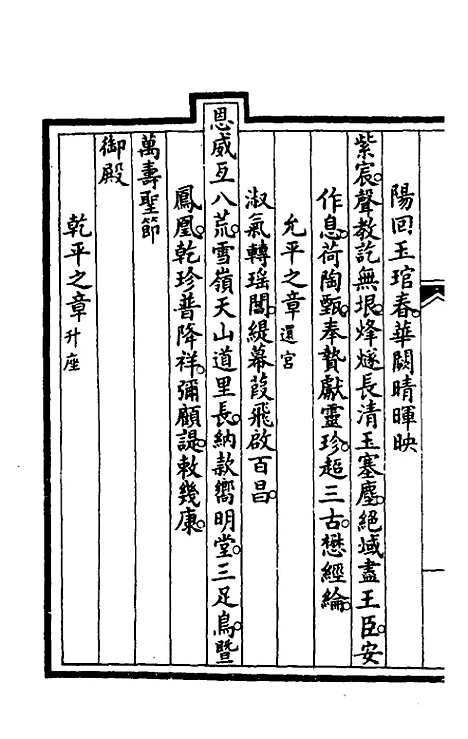 陽回玉琯春。華闕晴暉映
紫宸。聲教訖無垠。烽燧長清玉塞塵。絕域盡王臣。安
作息。荷陶甄。奉贄獻靈珍。超三古。懋經綸。
允平之章還宮
淑氣轉瑶閶。緹幕葭飛啟百昌。
恩威亙八荒。雪嶺天山道里長。納款嚮明堂。三足烏。暨
鳳凰。乾珍普降祥。彌顧諟。敕幾康。
萬壽聖節
御殿
乾平之章升座